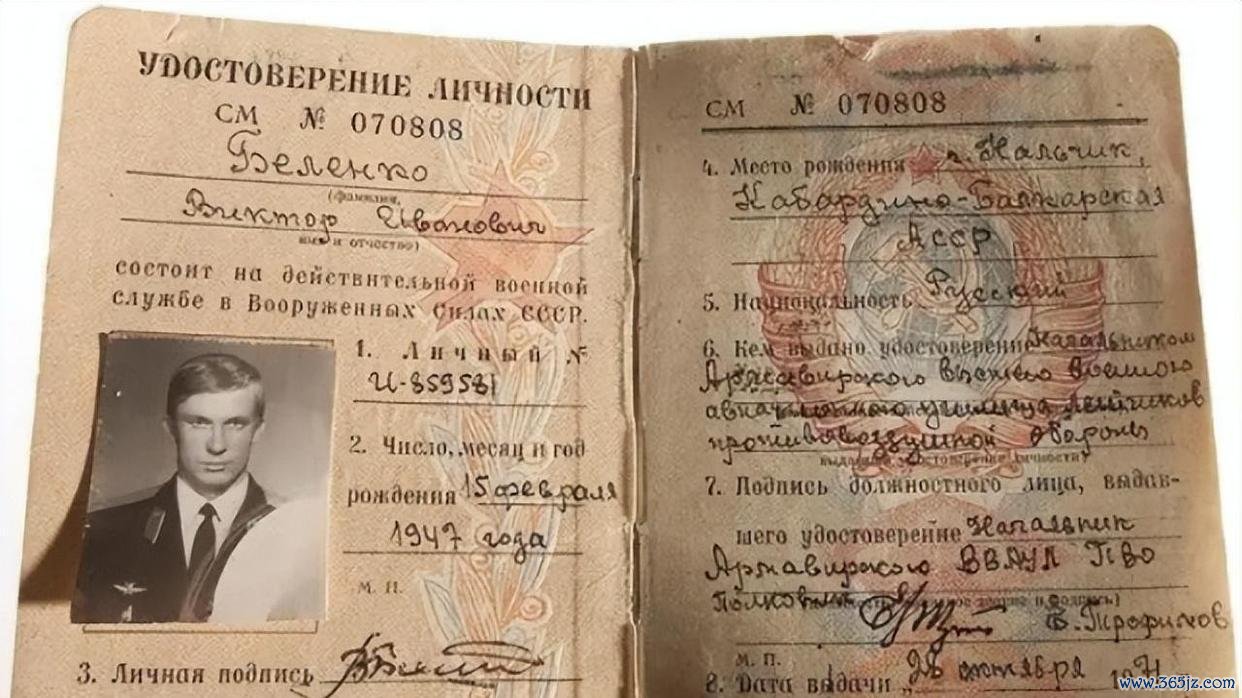 УДОСТОВЕРЕНИЕ ЛИЧНОСТИ
СМ № 070808
Беленко
(фамилия,
Виктор Иванович
имя и отчество)
состоит на действительной военной
службе в Вооруженных Силах СССР.
1. Личный №
И-859581
2. Число, месяц и год
рождения 15 февраля
1947 года
М. П.
3. Личная подпись
СМ № 070808
4. Место рождения г. Нальчик,
Кабардино-Балкарская
АССР
5. Национальность Русский
6. Кем выдано удостоверение Начальником
Армавирского высшего военного
авиационного училища летчиков
противовоздушной обороны
7. Подпись должностного лица, выдав-
шего удостоверение Начальник
Армавирского ВВАУЛ ПВО
Полковник В. Трофимов
М. П.
8. Дата выдачи „28 октября 1971
www.365jz.com